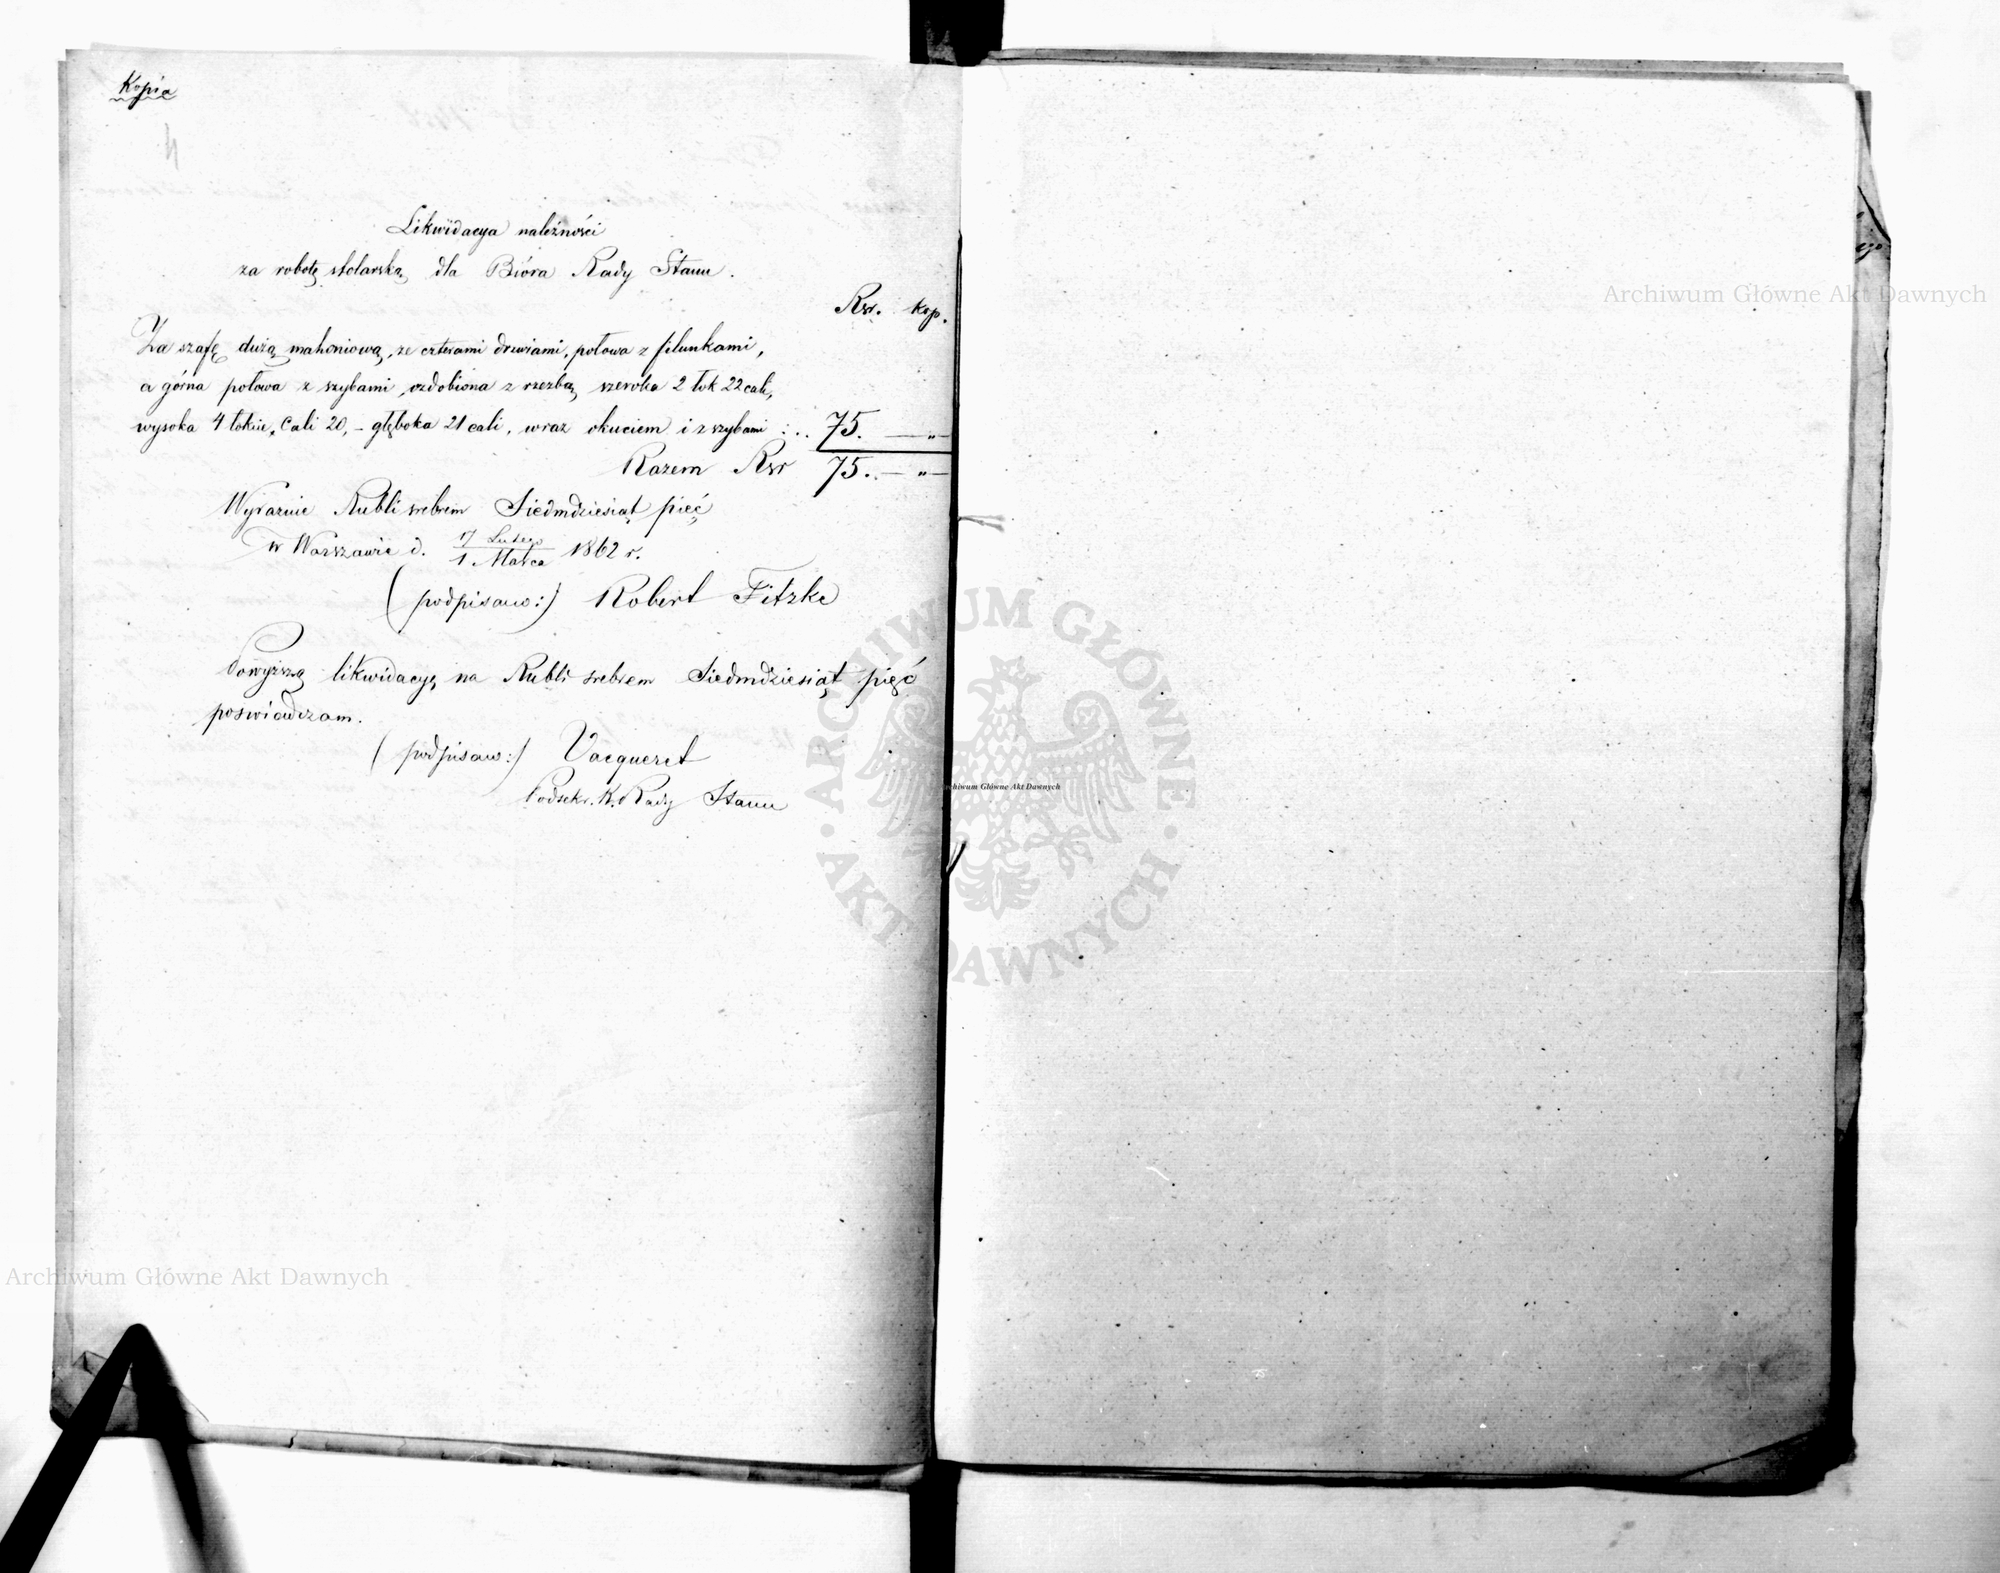 Kopia
Likwidacya należności
za robotę stolarską dla Bióra Rady Stanu.
Rsr. kop.
Za szafę dużą mahoniową, ze czterami drzwiami, połowa z filunkami,
a górna połowa z szybami, ozdobiona z rzezbą, szeroka 2 łok 22 cali,
wysoka 4 łokcie, Cali 20, – głęboka 21 cali, wraz okuciem i z szybami : .. 75. — „ —
Razem Rsr 75. — „ —
Wyraznie Rubli srebrem Siedmdziesiąt pieć
w Warszawie d. 17 Lutego / 1 Marca 1862 r.
(podpisano:) Robert Fitzke
Powyższą likwidacyę na Rubli srebrem Siedmdziesiąt pięć
poswiadczam.
(podpisano:) Vacqueret
Podsekr. K. Rady Stanu
Archiwum Główne Akt Dawnych
Archiwum Główne Akt Dawnych
Archiwum Główne Akt Dawnych
ARCHIWUM GŁÓWNE AKT DAWNYCH